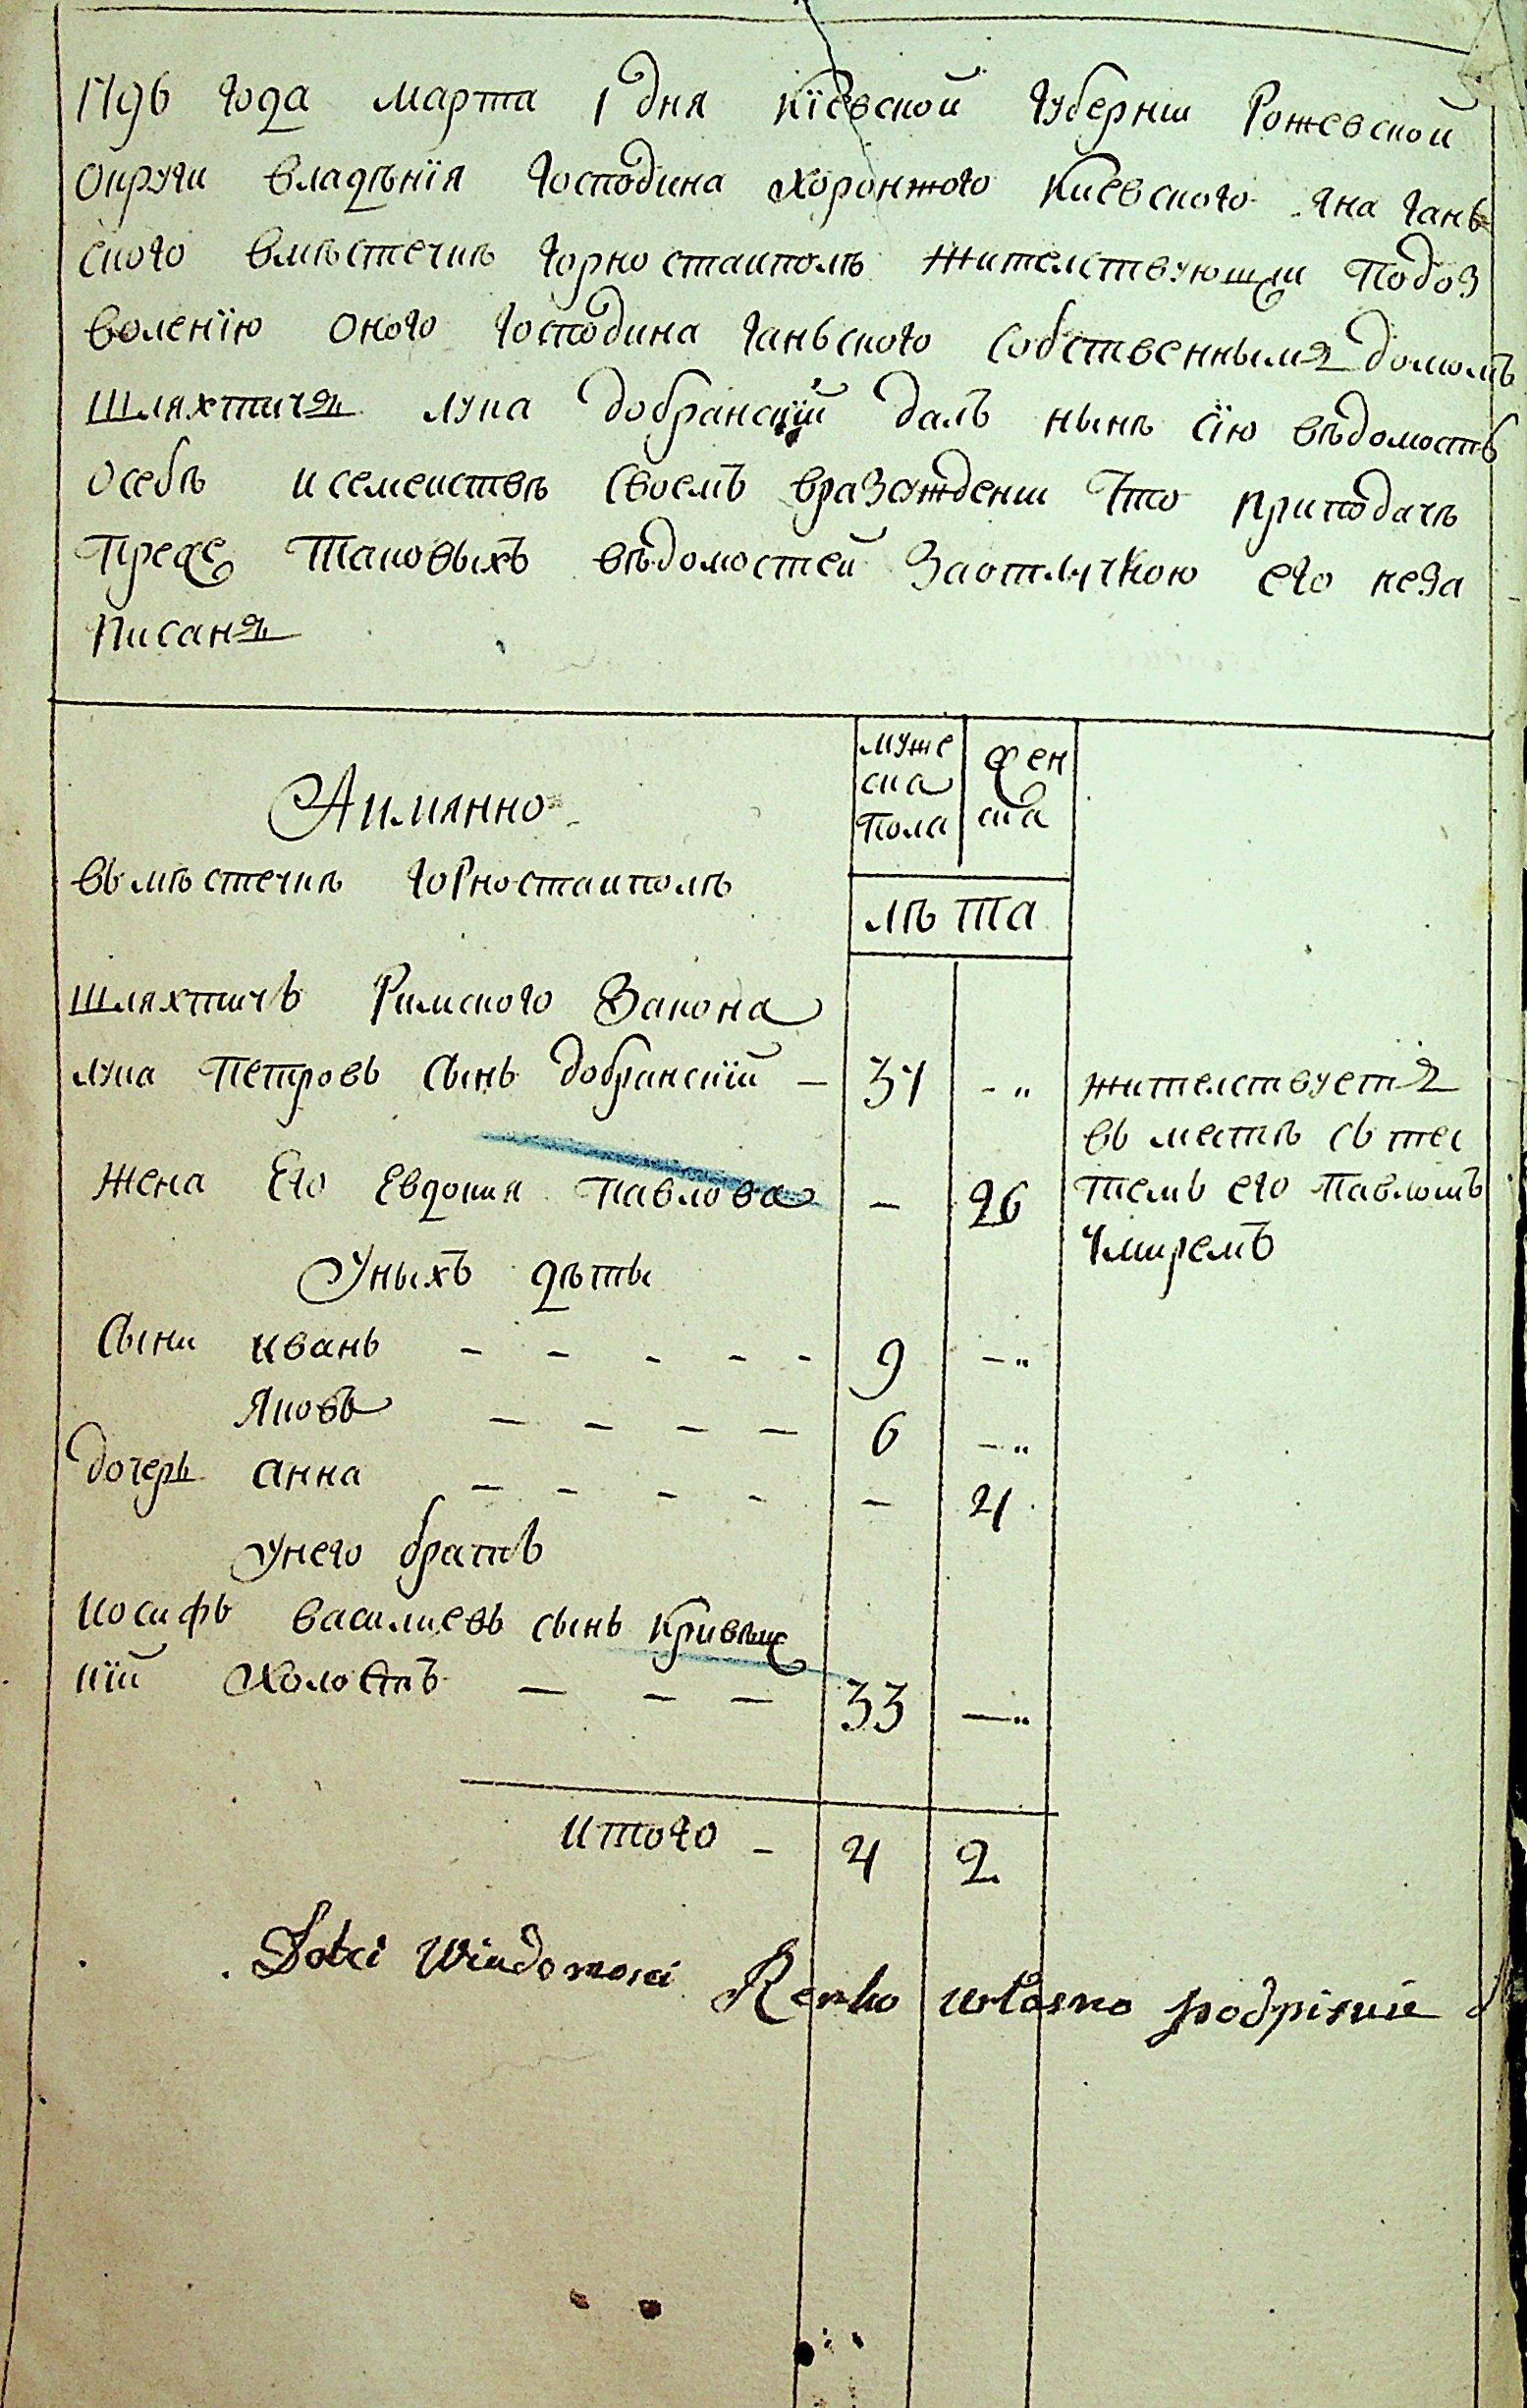 1796 года марта 1 дня Кїевской губернии Рожевской
округи владѣнїя господина хоронжого Киевского Яна Гань
ского вмѣстечкѣ Горностаиполѣ жителствующи подоз
воленїю оного господина Ганьского собственнымъ домомъ
шляхтичъ Лука Добранскїй далъ нынѣ сїю вѣдомость
осебѣ исемеиствѣ своемъ вразсуждении что приподачѣ
преже таковыхъ вѣдомостей заотлучкою его неза
писанъ
Аимянно
муже
ска
пола
жен
ска
вьмѣстечкѣ Горностаиполѣ
лѣта
шляхтичь Римского закона
Лука Петровь сынь Добранскїй – 34 – „
жителствуетъ
вь местѣ сь тес
темь его Павломъ
жена Его Евдокия Павлова – 26
Уныхъ дѣты
Сыни Ивань – – – – – 9 – „
Яковь – – – – 6 – „
дочерь Анна – – – – – 4
унего брать
Иосифь Василиевь сынь
кїй холостъ – – – 33 – „
Итого – 4 2
Dotei Wiadomosci Renko własno podpisuie